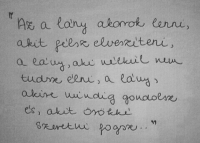 "Az a lány akarok lenni,
akit félsz elveszíteni,
a lány, aki nélkül nem
tudsz élni, a lány,
akire mindig gondolsz
és, akit örökké
szeretni fogsz.."